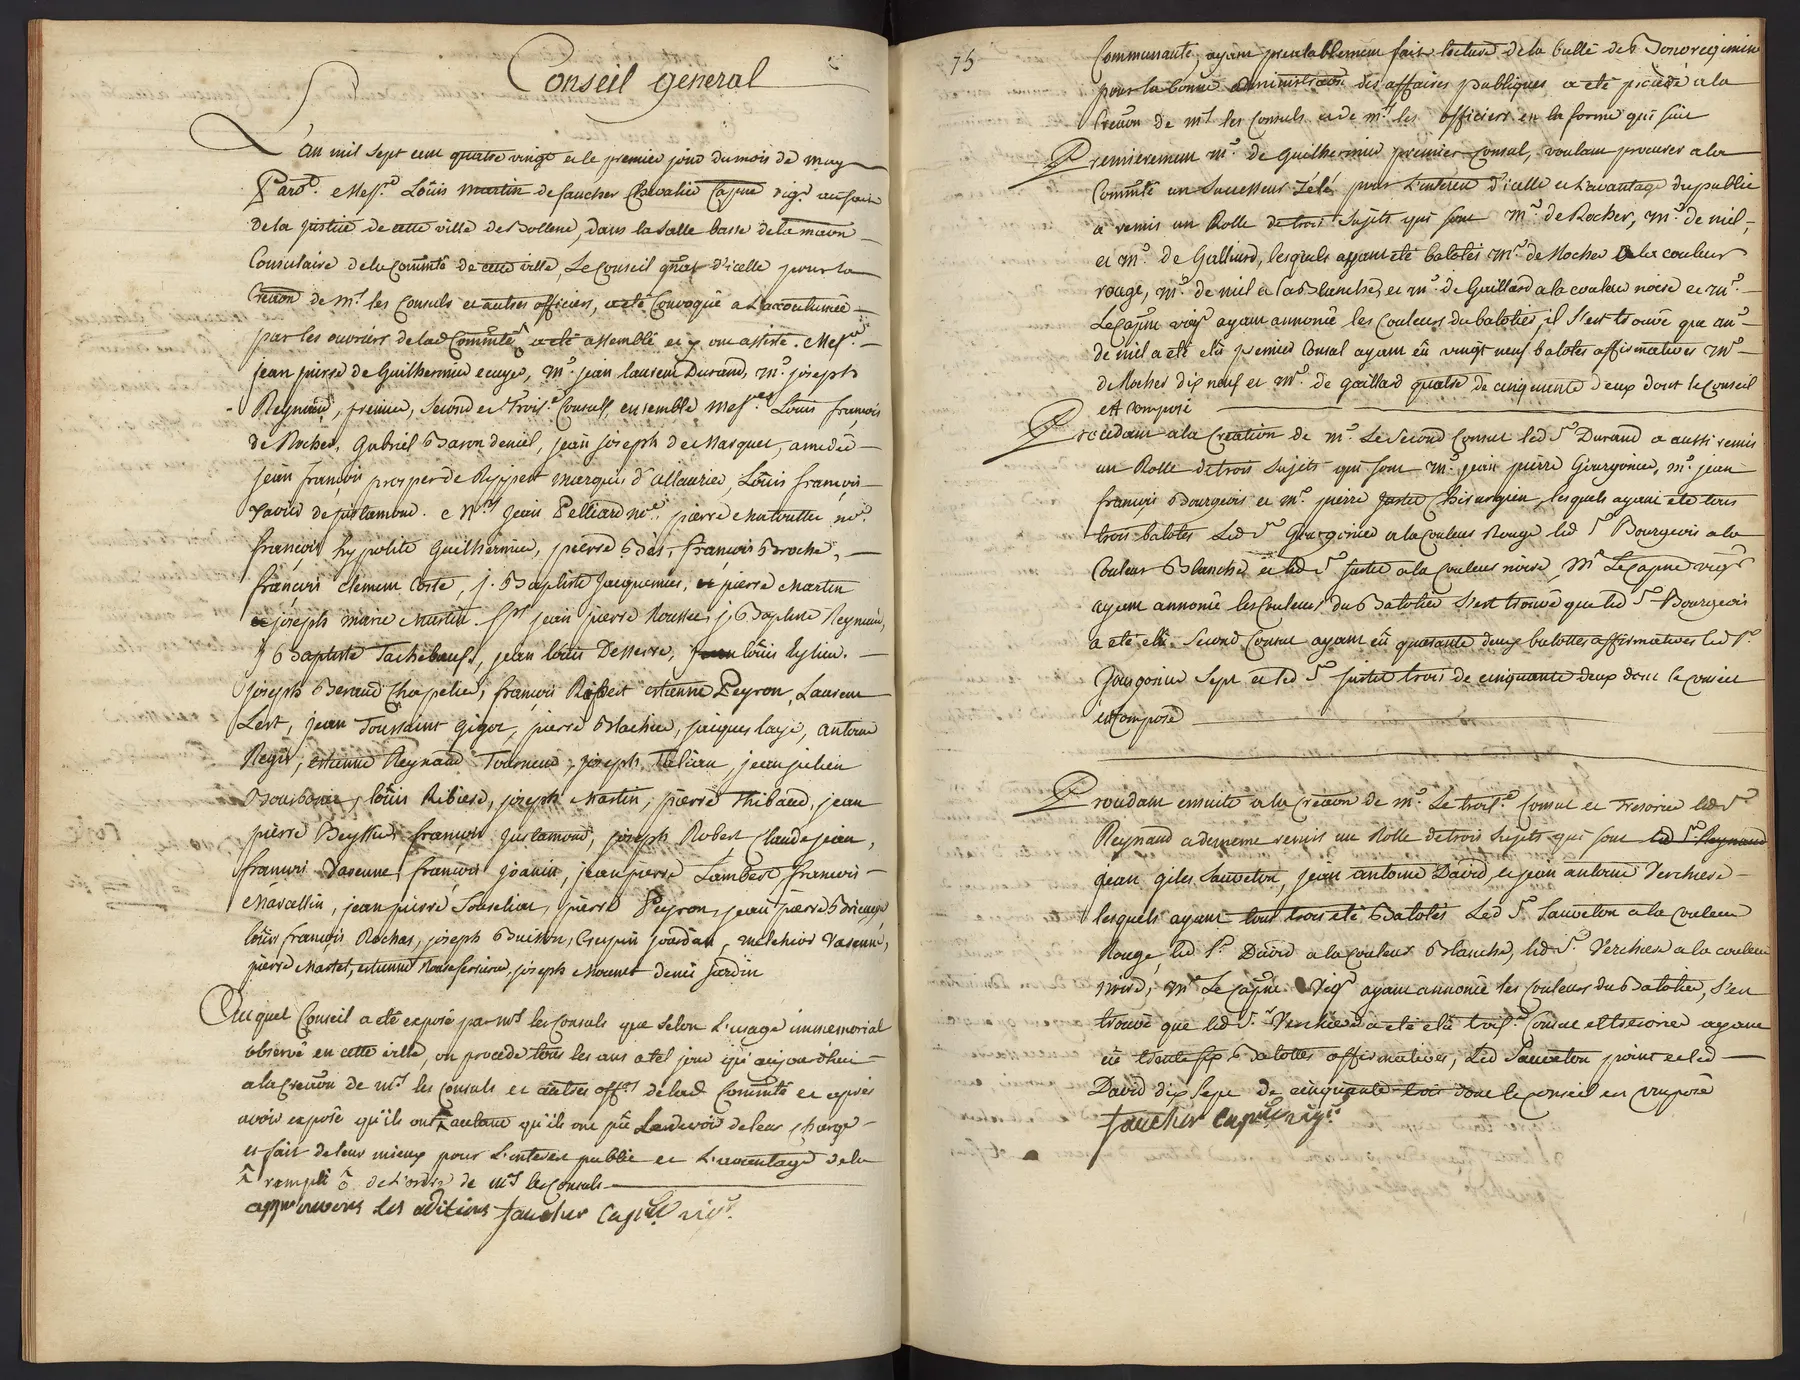 Conseil general
L'an mil sept cent quatre vingt et le premier jour du mois de may
Pard. e Mess.e Louis martin de faucher Chevalier Capne vigr au fait
de la justice de cette ville de Bollene, dans la salle basse de la maison
Consulaire de la Commté de cette ville, Le Conseil gnãl d'icelle pour la
Creaon de mrs les Consuls et autres officiers, a eté Convoqué a l'accoutumée
par les ouvriers de lad Commté ô a eté assemblé et y ont assisté. Messrs
jean pierre de Guilhermier ecuyer, mr. jean laurent Durand, mr. joseph
Reynaud, premier, second et troise Consuls, ensemble messres Louis françois
de Rocher, Gabriel Baron deniel, jean joseph de Marquet, amedée
jean françois prosper de Ripert marquis d'allauzier, Louis françois
Xavier de juslamond. e Mrs jean Pelliard nore. pierre Maroutte nore.
françois hypolite Guilhermier, pierre Bès, françois Broche,
françois Clement Coste, j. Baptiste Jacquemier, et pierre Martin
et joseph marie Martin. Srs jean pierre Roussel, j Baptiste Reynaud,
j Baptiste Tacheboeuf, jean louis Desserre, jean louis Eylieu.
joseph Beraud Chapelier, françois Robert estienne Peyron, Laurent
Lert, jean Toussaint Gigot, pierre Blachier, jacques laye, antoine
Regis, estienne Reynaud Tourneur, joseph Talian, jean julien
Bourbonier, louis Ribiere, joseph Martin, pierre Thibaud, jean
pierre Beyssier françois juslamond, joseph Robert, Claude jean,
françois Dasenne, françois joanin, jean pierre Lambert, françois
Marcellin, jean pierre Souchon, pierre Peyron, jean pierre
louis françois Rochas, joseph Buisson, Crespin jourdan, melchior Dasenne,
pierre Martel, estienne joseph Mounet denis jardin
Auquel Conseil a eté exposé par mrs les Consuls que selon l'usage immemorial
observé en cette ville, on procede tous les ans a tel jour qu'aujourd'hui
a la Creaon de mrs les Consuls et autres offrs de lad Commté et après
avoir exposé qu'ils ont ^ autant qu'ils ont pû Le devoir de leur charge
et fait de leur mieux pour l'interet public et l'avantage de la
^ rampli ô de l'ordre de mrs les Consuls
approuvons les aditions faucher capne vigr.
75
Communauté, ayant prealablement fait lecture de la bulle de Bono regimine
pour la bonne administraon des affaires publiques a eté procedé a la
Creaon de mrs les Consuls et de mrs les officiers en la forme qui suit
Premierement mr. de Guilhermier premier Consul, voulant procurer a la
Commté un Successeur zélé, pour l'interet d'icelle et l'avantage du public
a remis un Rolle de trois sujets qui sont mr. de Rocher, mr. de niel,
et mr. de Gaillard, lesquels ayant eté balotés mr. de Rocher a la couleur
rouge, mr. de niel a la Blanche, et mr. de Gaillard a la couleur noire et mr.
Le Capne vigr ayant annoncé les Couleurs du balotier, il s'est trouvé que mr.
de niel a eté elû premier Consul ayant eû vingt neuf balotes affirmatives mr.
de Rocher dix neuf et mr. de gaillard quatre de cinquante deux dont le Conseil
est composé
Procedant a la Creation de mr. Le second Consul led Sr Durand a aussi remis
un Rolle de trois sujets qui sont mr. jean pierre Gourgonier, mr. jean
françois Bourgeois et mr. pierre Juster Chirurgien, lesquels ayant eté tous
trois balotés Led Sr Gourgonier a la couleur Rouge led Sr Bourgeois a la
Couleur Blanche et led Sr Juster a la Couleur noire, Mr Le Capne vigr
ayant annoncé les Couleurs du Balotier s'est trouvé que led Sr Bourgeois
a eté elû second Consul ayant eû quarante deux balottes affirmatives led Sr.
Gourgonier sept et led Sr Juster trois de cinquante deux dont le conseil
est composé
Procedant ensuite a la Creaon de mr. Le troise Consul et Tresorier led Sr.
Reynaud a de meme remis un Rolle de trois sujets qui sont led Sr Reynaud
jean giles Sauveton, jean antoine David, et jean antoine Verchiere
lesquels ayant tous trois eté Balotés Led Sr. Sauveton a la couleur
Rouge, led Sr. David a la Couleur Blanche, led Sr. Verchiere a la couleur
noire, Mr Le Capne Vigr ayant annoncé les Couleurs du Balotier, s'est
trouvé que led Sr. Verchiere a eté elû troise Consul et tresorier ayant
eû trente six Balottes affirmatives, Led Sauveton point et led
David dix sept de cinquante trois dont le Conseil est composé
faucher capne vigr.